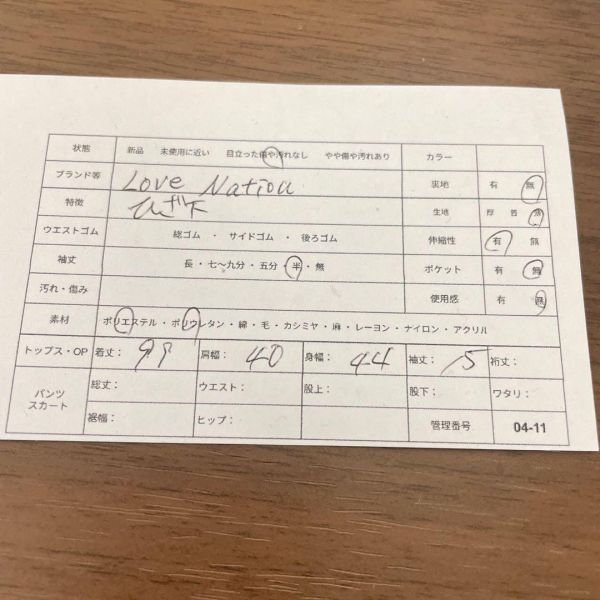 状態 新品 未使用に近い 目立った傷や汚れなし やや傷や汚れあり カラー
ブランド等 Love Nation 裏地 有 無
特徴 ひざ下 生地 厚 普 薄
ウエストゴム 総ゴム ・ サイドゴム ・ 後ろゴム 伸縮性 有 無
袖丈 長・七～九分・五分・半・無 ポケット 有 無
汚れ・傷み 使用感 有 無
素材 ポリエステル・ポリウレタン・綿・毛・カシミヤ・麻・レーヨン・ナイロン・アクリル
トップス・OP 着丈: 99 肩幅: 40 身幅: 44 袖丈: 15 裄丈:
パンツ スカート 総丈: ウエスト: 股上: 股下: ワタリ:
裾幅: ヒップ: 管理番号 04-11